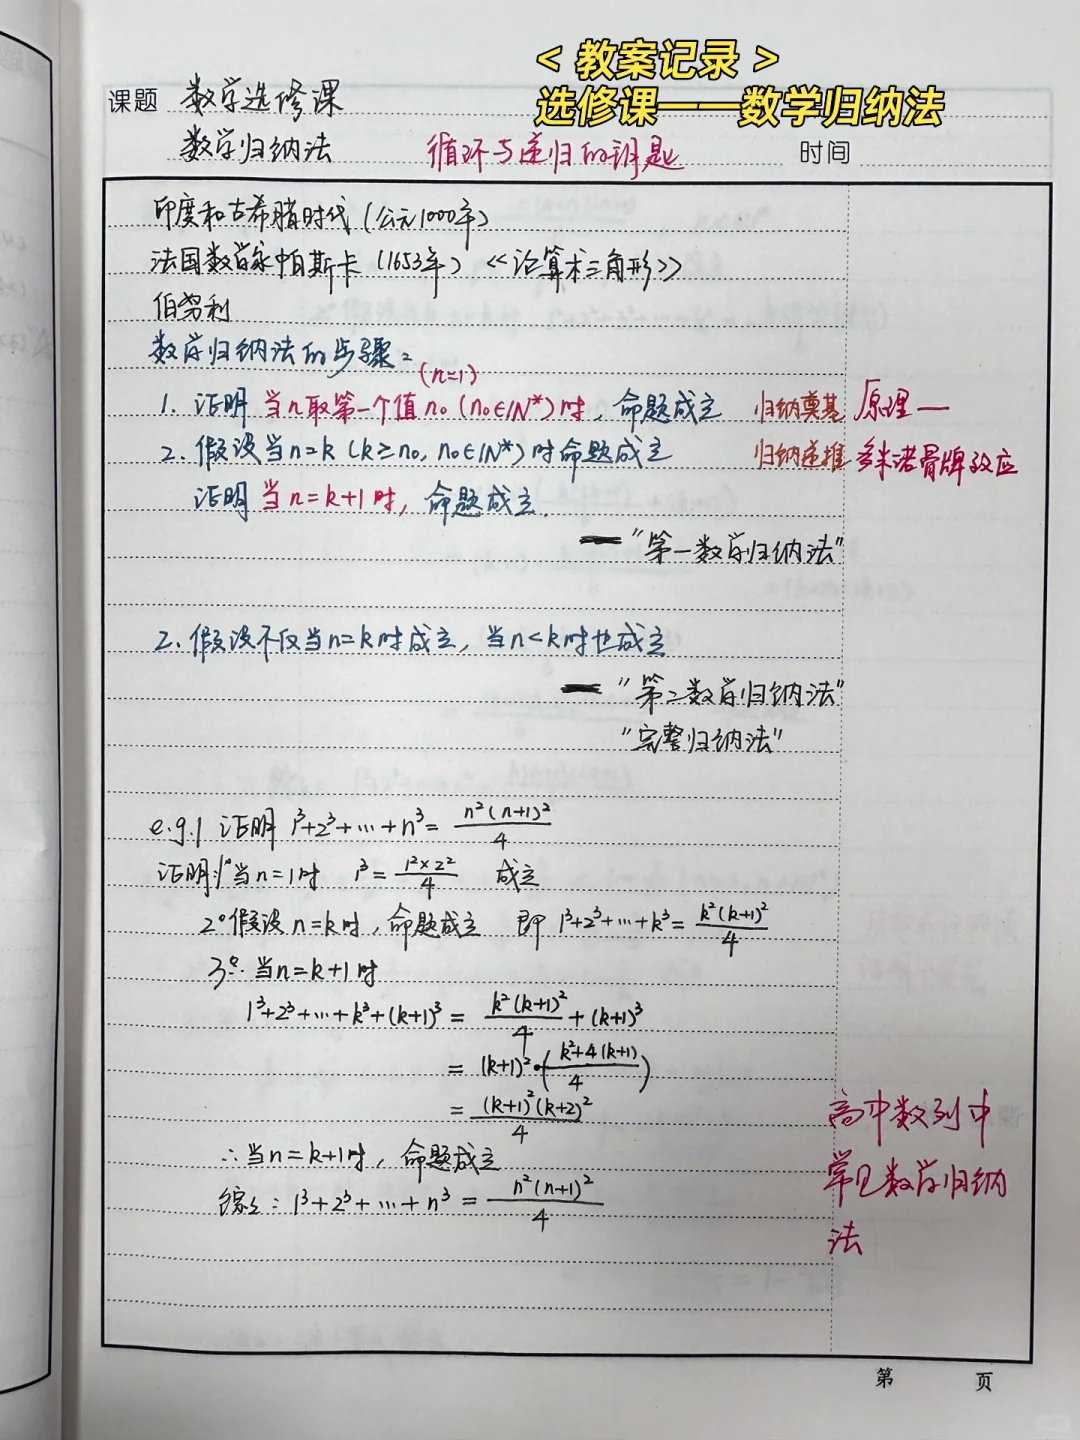 < 教案记录 >
选修课——数学归纳法
课题 数学选修课
数学归纳法 循环与递归的钥匙 时间
印度和古希腊时代 (公元1000年)
法国数学家帕斯卡 (1653年) <<论算术三角形>>
伯努利
数学归纳法的步骤：
(n=1)
1. 证明 当n取第一个值n₀ (n₀∈N*)时，命题成立 归纳奠基 原理—
2. 假设当n=k (k≥n₀, n₀∈N*)时命题成立 归纳递推 多米诺骨牌效应
证明 当n=k+1时，命题成立.
— "第一数学归纳法"
2. 假设不仅当n=k时成立，当n<k时也成立
— "第二数学归纳法"
"完整归纳法"
e.g.1 证明 1³+2³+…+n³= n²(n+1)²/4
证明: 1° 当n=1时 1³= 1²×2²/4 成立
2° 假设n=k时，命题成立 即 1³+2³+…+k³= k²(k+1)²/4
3° ∴当n=k+1时
1³+2³+…+k³+(k+1)³ = k²(k+1)²/4 + (k+1)³
= (k+1)²·(k²+4(k+1)/4)
= (k+1)²(k+2)²/4
∴当n=k+1时，命题成立
综上: 1³+2³+…+n³ = n²(n+1)²/4
高中数列中
常见数学归纳
法
第 页